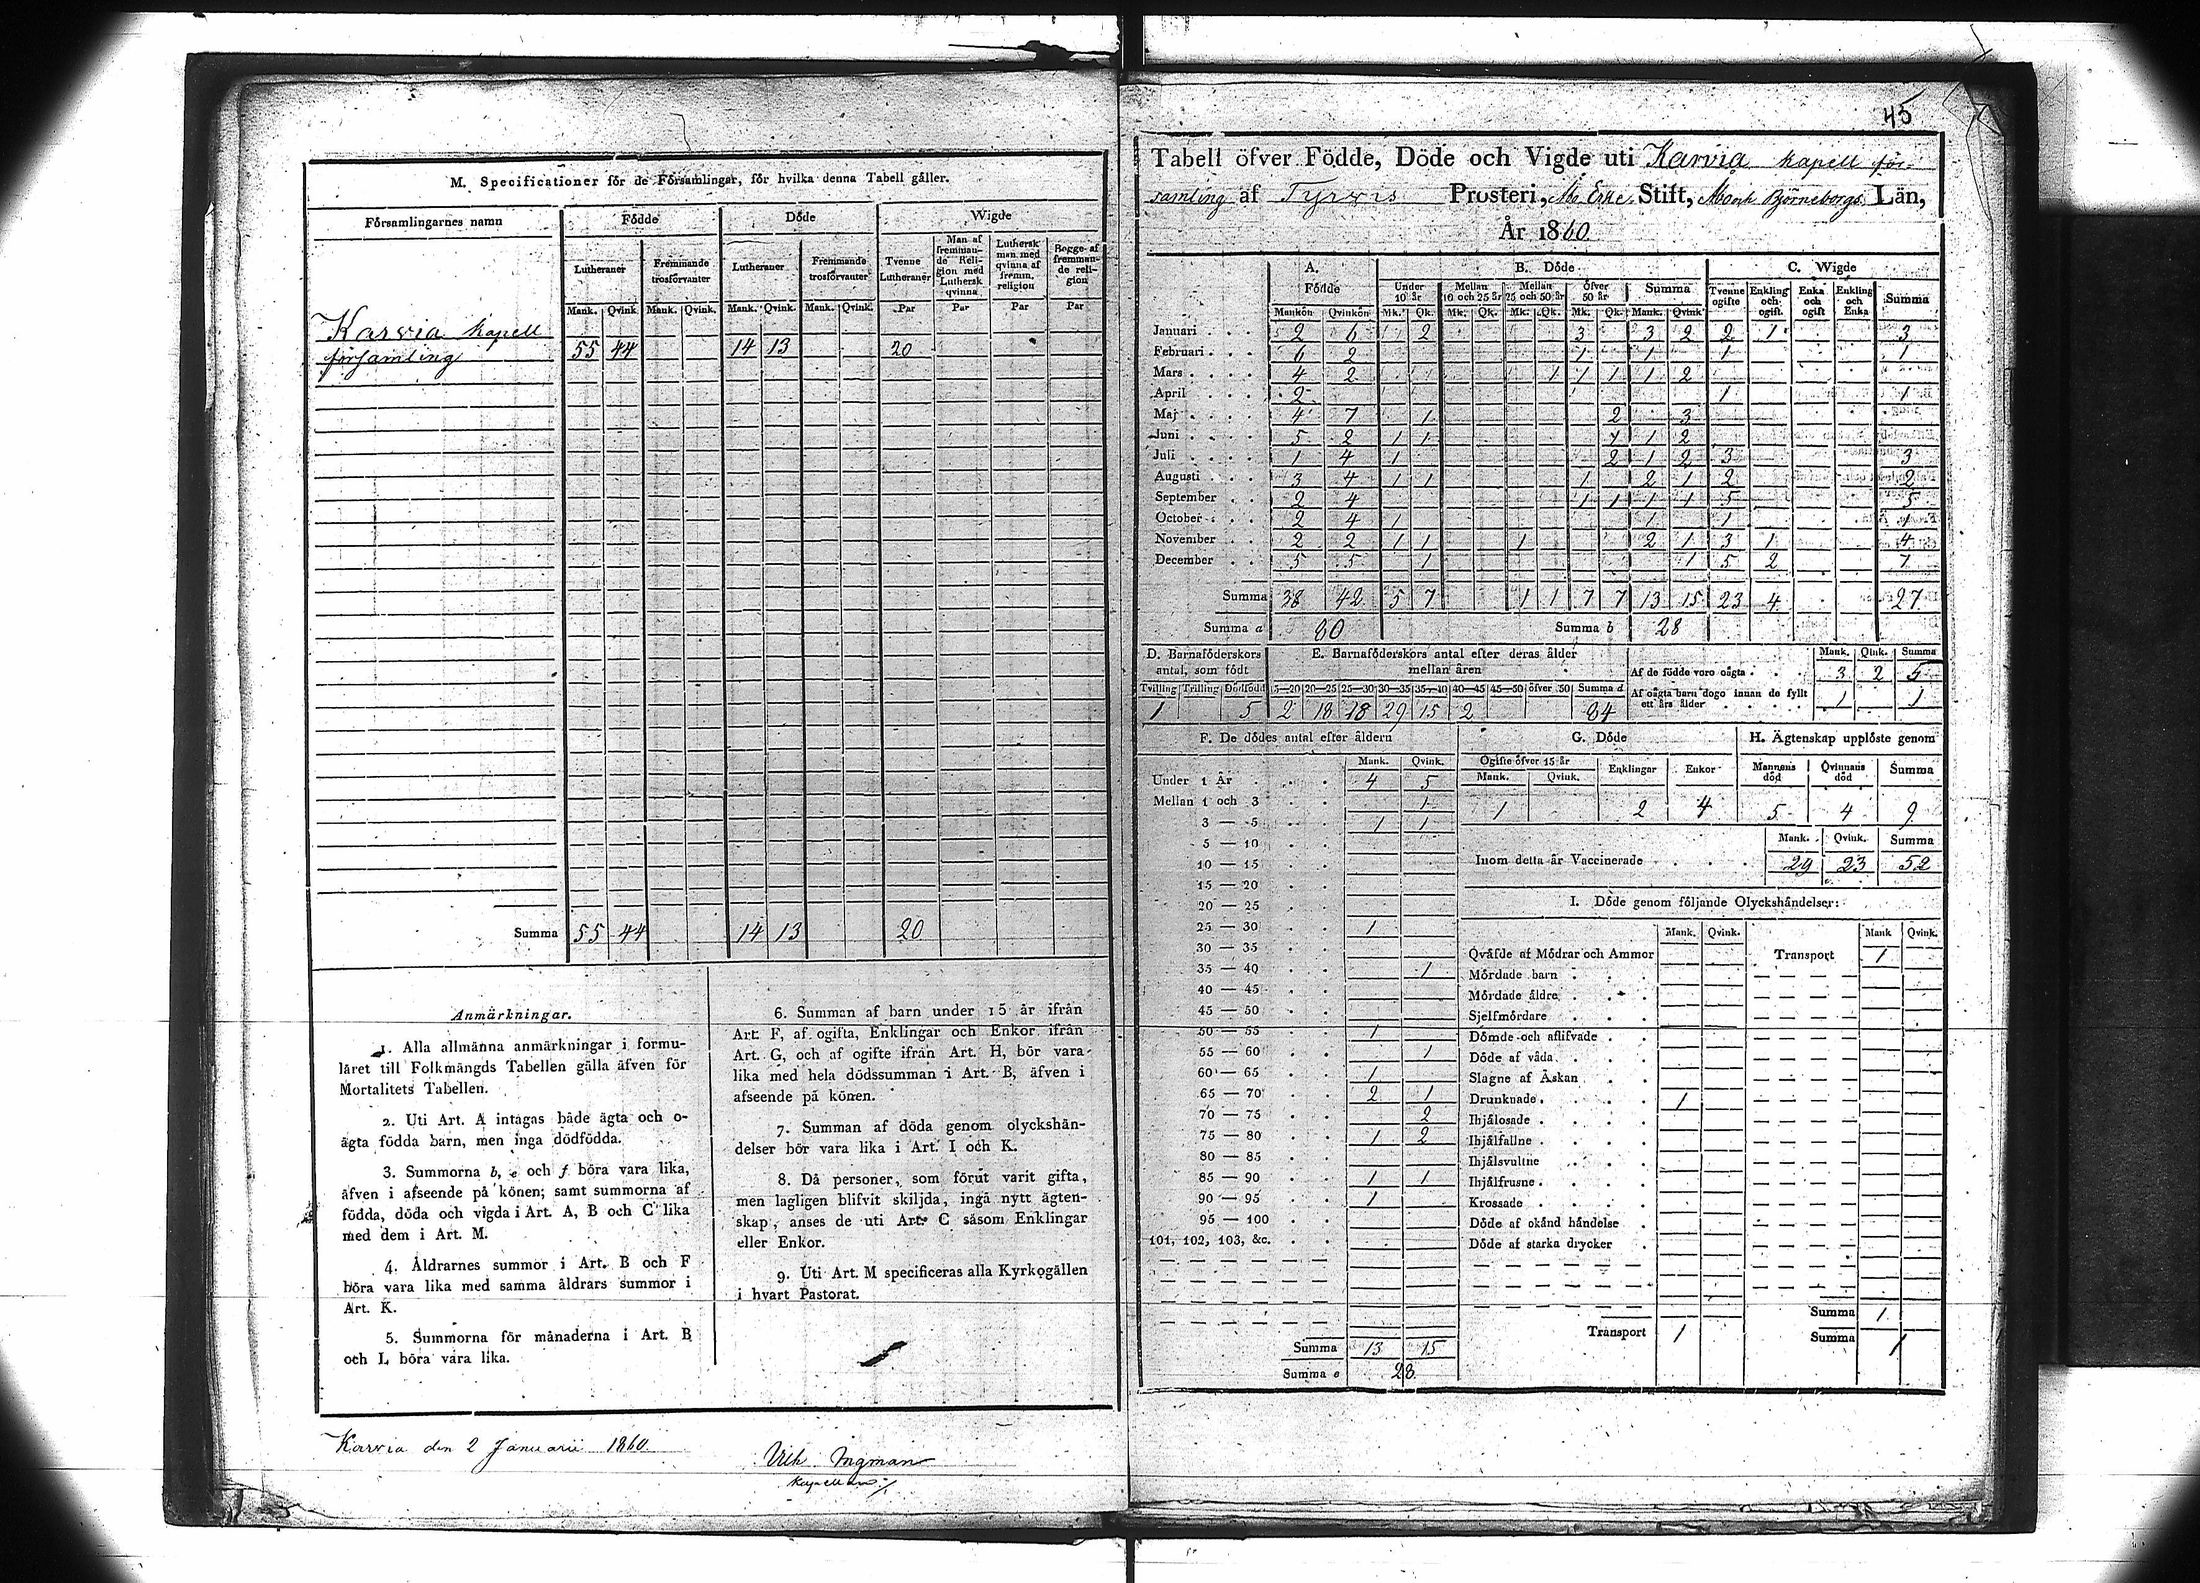 M. Specificationer för de Församlingar, för hvilka denna Tabell gäller.
Församlingarnes namn | Födde | Döde | Wigde
Lutheraner | Fremmande trosförvanter | Lutheraner | Fremmande trosförvanter | Tvenne Lutheraner | Man af fremmande Religion med Luthersk qvinna | Luthersk man med qvinna af fremm. religion | Begge af fremmande religion
Mank. | Qvink. | Mank. | Qvink. | Mank. | Qvink. | Mank. | Qvink. | Par | Par | Par | Par
Karvia kapell
församling 55 44 14 13 20
Summa 55 44 14 13 20
Anmärkningar.
1. Alla allmänna anmärkningar i formu-
läret till Folkmängds Tabellen gälla äfven för
Mortalitets Tabellen.
2. Uti Art. A intagas både ägta och o-
ägta födda barn, men inga dödfödda.
3. Summorna b, e och f böra vara lika,
äfven i afseende på könen; samt summorna af
födda, döda och vigda i Art. A, B och C lika
med dem i Art. M.
4. Åldrarnes summor i Art. B och F
böra vara lika med samma åldrars summor i
Art. K.
5. Summorna för månaderna i Art. B
och L böra vara lika.
6. Summan af barn under 15 år ifrån
Art. F, af ogifta, Enklingar och Enkor ifrån
Art. G, och af ogifte ifrån Art. H, bör vara
lika med hela dödssumman i Art. B, äfven i
afseende på könen.
7. Summan af döda genom olyckshän-
delser bör vara lika i Art. I och K.
8. Då personer, som förut varit gifta,
men lagligen blifvit skiljda, ingå nytt ägten-
skap, anses de uti Art. C såsom Enklingar
eller Enkor.
9. Uti Art. M specificeras alla Kyrkogällen
i hvart Pastorat.
Karvia den 2 Januarii 1860.
Vilh. Ingman
Kapellan
45
Tabell öfver Födde, Döde och Vigde uti Karvia kapell för-
samling af Tyrvis Prosteri, Åbo Erke Stift, Åbo och Björneborgs Län,
År 1860.
A. Födde | B. Döde | C. Wigde
Under 10 år | Mellan 10 och 25 år | Mellan 25 och 50 år | Öfver 50 år | Summa | Tvenne ogifte | Enkling och ogift. | Enka och ogift | Enkling och Enka | Summa
Mankön | Qvinkön | Mk. | Qk. | Mk. | Qk. | Mk. | Qk. | Mk. | Qk. | Mank. | Qvink.
Januari 2 6 2 3 3 2 2 1 3
Februari 6 2 1 1 1 1
Mars 4 2 1 1 1 1 2
April 2 1 1
Maj 4 7 1 2 3
Juni 5 2 1 1 1 1 2
Juli 1 4 1 2 1 2 3 3
Augusti 3 4 1 1 1 2 1 2 2
September 2 4 1 1 1 1 5 5
October 2 4 1 1 1 1
November 2 2 1 1 1 2 1 3 1 4
December 5 5 1 1 5 2 7
Summa 38 42 5 7 1 1 7 7 13 15 23 4 27
Summa a 80 Summa b 28
D. Barnaföderskors antal, som födt
Tvilling | Trilling | Dödfödd
1 5
E. Barnaföderskors antal efter deras ålder mellan åren
15—20 | 20—25 | 25—30 | 30—35 | 35—40 | 40—45 | 45—50 | öfver 50 | Summa d
2 18 18 29 15 2 84
Mank. | Qink. | Summa
Af de födde voro oägta 3 2 5
Af oägta barn dogo innan de fyllt ett års ålder 1 1
F. De dödes antal efter åldern
Mank. | Qvink.
Under 1 År 4 5
Mellan 1 och 3 1
3 — 5 1 1
5 — 10
10 — 15
15 — 20
20 — 25
25 — 30 1
30 — 35
35 — 40 1
40 — 45
45 — 50
50 — 55 1
55 — 60 1
60 — 65 1
65 — 70 2 1
70 — 75 2
75 — 80 1 2
80 — 85
85 — 90 1 1
90 — 95 1
95 — 100
101, 102, 103, &c.
Summa 13 15
Summa e 28
G. Döde
Ogifte öfver 15 år | Enklingar | Enkor
Mank. | Qvink.
1 2 4
H. Ägtenskap upplöste genom
Mannens död | Qvinnans död | Summa
5 4 9
Mank. | Qvink. | Summa
Inom detta år Vaccinerade 29 23 52
I. Döde genom följande Olyckshändelser:
Mank. | Qvink. | Mank | Qvink.
Qväfde af Mödrar och Ammor Transport 1
Mördade barn
Mördade äldre
Sjelfmördare
Dömde och aflifvade
Döde af våda
Slagne af Åskan
Drunknade 1
Ihjälosade
Ihjälfallne
Ihjälsvultne
Ihjälfrusne
Krossade
Döde af okänd händelse
Döde af starka drycker
Summa 1
Transport 1 Summa 1